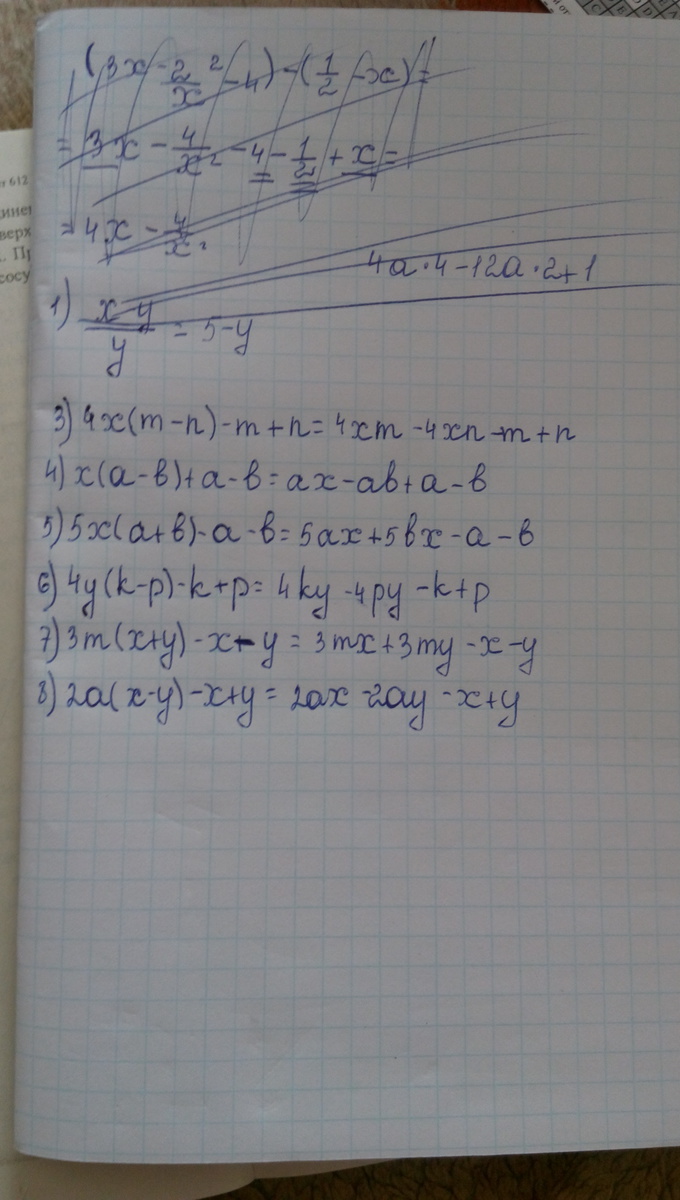 (3x - 2/x² - 4) - (1/2 - x) =
= 3x - 4/x² - 4 - 1/2 + x =
= 4x - 4/x²
4a·4-12a·2+1
1) x-y/y = 5-y
3) 4x(m-n)-m+n=4xm-4xn-m+n
4) x(a-b)+a-b=ax-ab+a-b
5) 5x(a+b)-a-b=5ax+5bx-a-b
6) 4y(k-p)-k+p=4ky-4py-k+p
7) 3m(x+y)-x-y=3mx+3my-x-y
8) 2a(x-y)-x+y=2ax-2ay-x+y